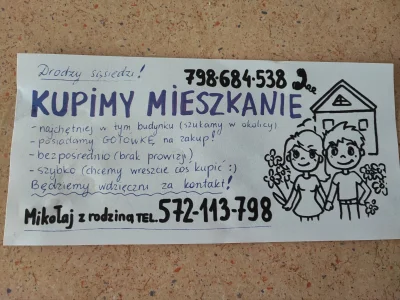 Drodzy sąsiedzi!
798-684-538
KUPIMY MIESZKANIE
- najchętniej w tym budynku (szukamy w okolicy)
- posiadamy GOTÓWKĘ na zakup!
- bezpośrednio (brak prowizji)
- szybko (chcemy wreszcie coś kupić :)
Będziemy wdzięczni za kontakt!
Mikołaj z rodziną TEL. 572-113-798